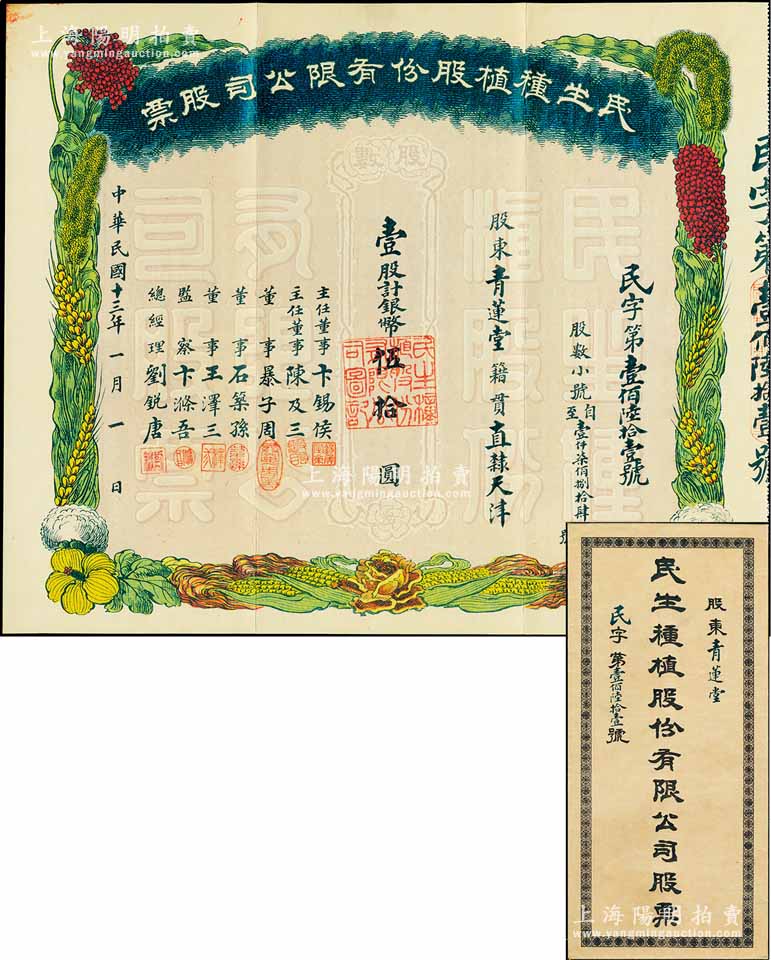 上海陽明拍賣
www.yangmingauction.com
上海陽明拍賣
www.yangmingauction.com
民生種植股份有限公司股票
股數
民字第壹佰陸拾壹號
股數小號自壹仟柒佰捌拾肆號
至
股東青蓮堂籍貫直隸天津
壹股計銀幣伍拾圓
民生種植股份有限公司圖記
主任董事卞錫侯
主任董事陳及三
董事暴子周
董事石築孫
董事王澤三
監察卞滌吾
總經理劉銳唐
中華民國十三年一月一日
民字第壹佰陸拾壹號
上海陽明拍賣
www.yangmingauction.com
股東青蓮堂
民生種植股份有限公司股票
民字第壹佰陸拾壹號
上海陽明拍賣
www.yangmingauction.com